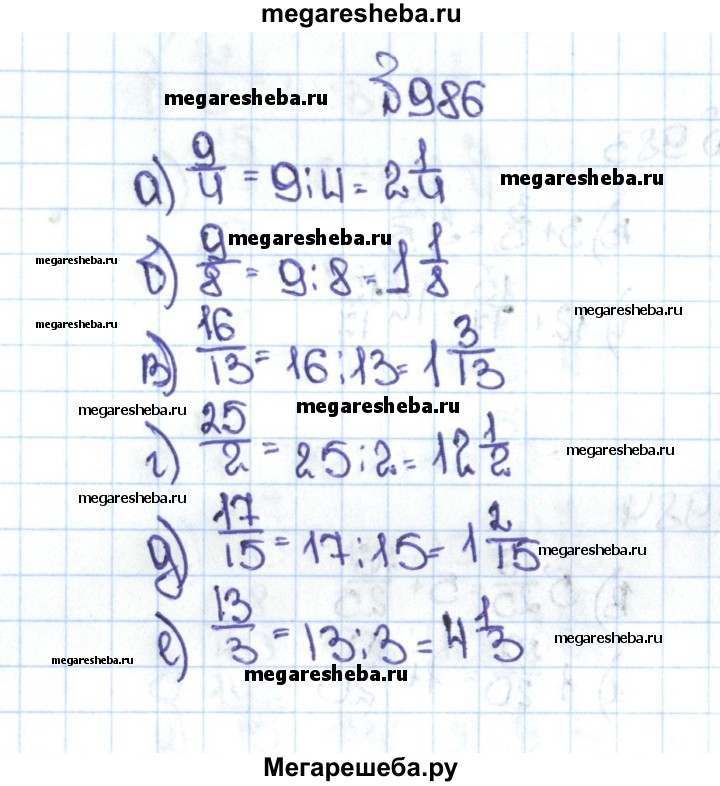 megaresheba.ru
№ 986
megaresheba.ru
а) 9/4 = 9:4 = 2 1/4
megaresheba.ru
megaresheba.ru
б) 9/8 = 9:8 = 1 1/8
megaresheba.ru
megaresheba.ru
megaresheba.ru
в) 16/13 = 16:13 = 1 3/13
megaresheba.ru
megaresheba.ru
г) 25/2 = 25:2 = 12 1/2
megaresheba.ru
megaresheba.ru
д) 17/15 = 17:15 = 1 2/15
megaresheba.ru
е) 13/3 = 13:3 = 4 1/3
megaresheba.ru
megaresheba.ru
megaresheba.ru
Мегарешеба.ру